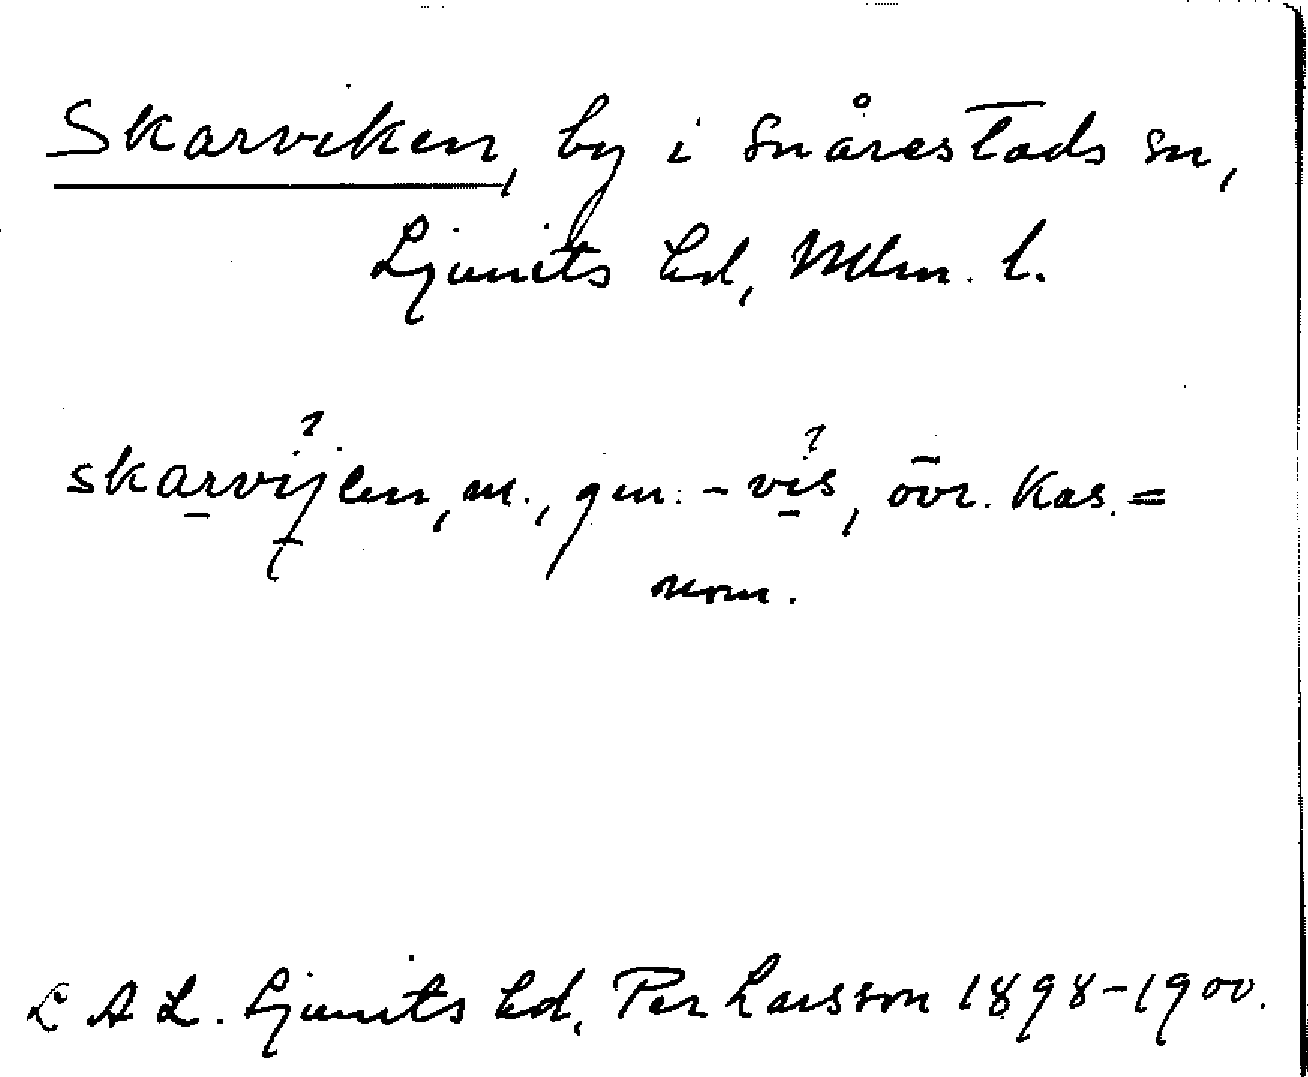 Skarviken, by i Snårestads sn,
Ljunits hd, Mlm. l.
skarvijlen, m., gen. -vis, övr. kas. =
nom.
LAL. Ljunits hd, Per Larsson 1898-1900.